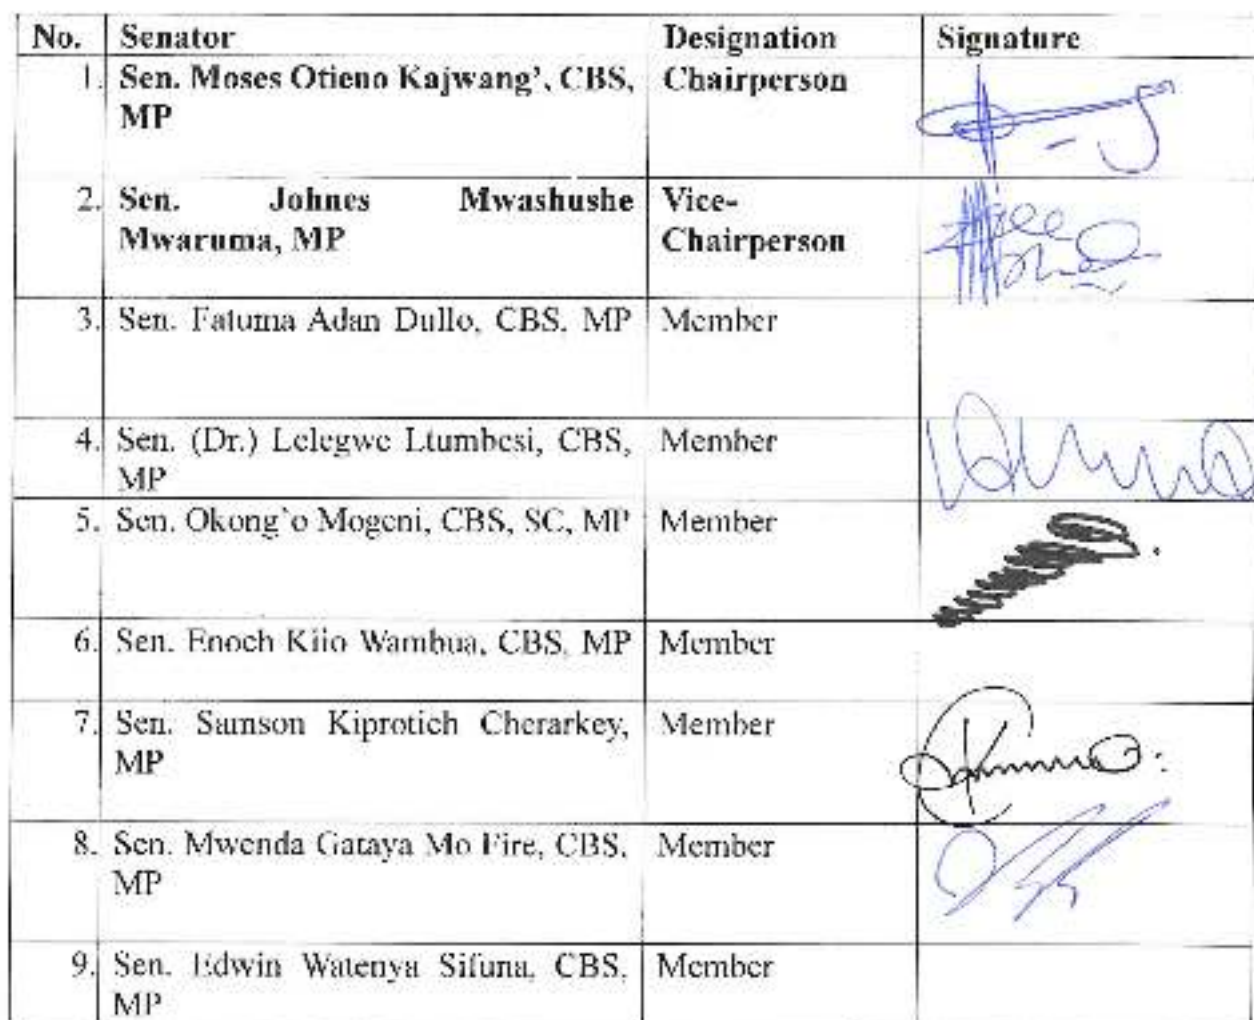 No. Senator Designation Signature
1. Sen. Moses Otieno Kajwang', CBS, Chairperson
MP
2. Sen. Johnes Mwashushe Vice-
Mwaruma, MP Chairperson
3. Sen. Fatuma Adan Dullo, CBS, MP Member
4. Sen. (Dr.) Lelegwe Ltumbesi, CBS, Member
MP
5. Sen. Okong`o Mogeni, CBS, SC, MP Member
6. Sen. Enoch Kiio Wambua, CBS, MP Member
7. Sen. Samson Kiprotich Cherarkey, Member
MP
8. Sen. Mwenda Gataya Mo Fire, CBS, Member
MP
9. Sen. Edwin Watenya Sifuna, CBS, Member
MP